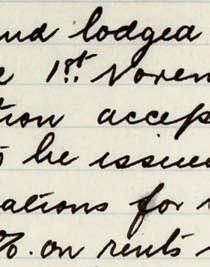 and lodged
e 1st Novem
tion accep
to be issued
ations for
%. on rents